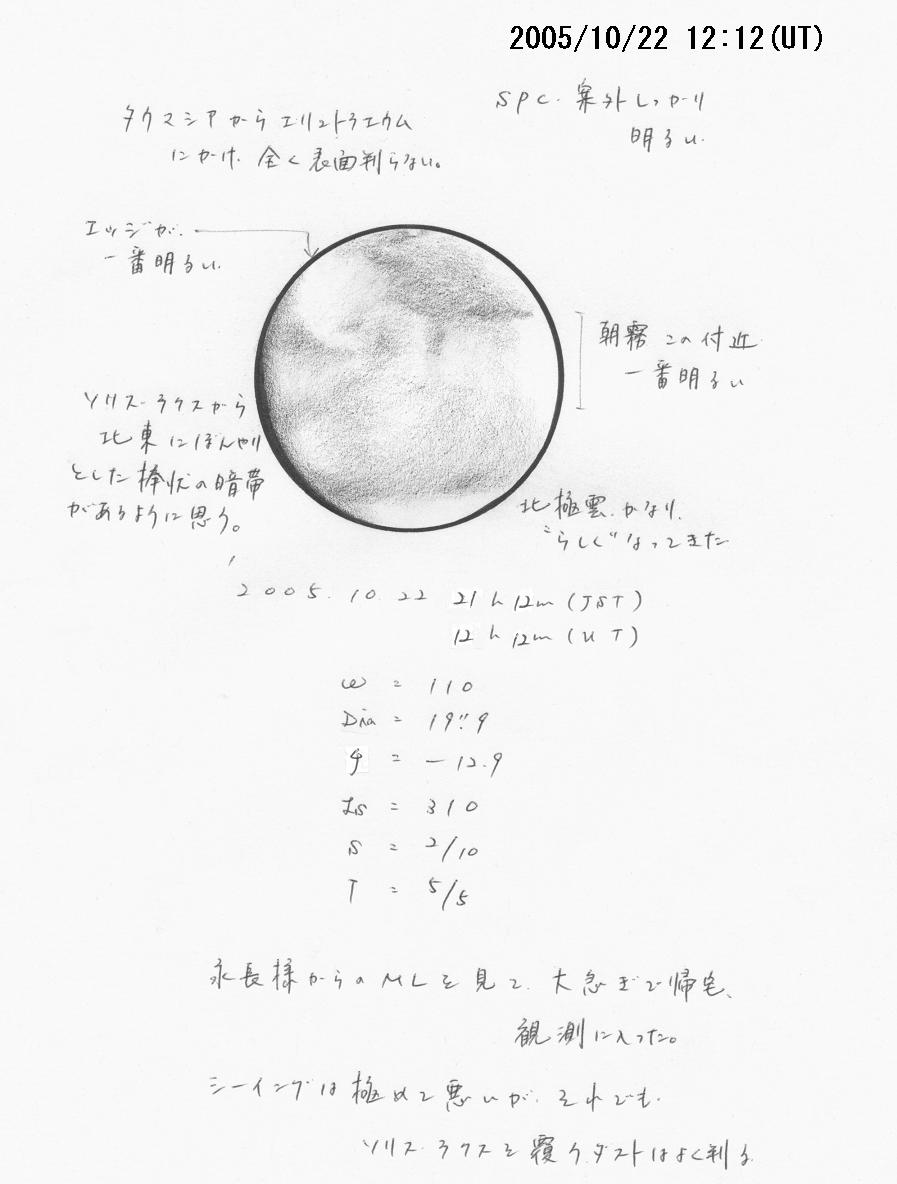 2005/10/22 12:12(UT)
SPC. 案外しっかり
明るい.
タウマシアからエリュトラエウム
にかけ、全く表面判らない。
エッジが、
一番明るい.
朝霧 この付近
一番明るい
ソリス・ラクスから
北東にぼんやり
とした棒状の暗帯
があるように思う。
北極雲.かなり、
"らしく"なってきた
2005.10.22 21h12m(JST)
12h12m(UT)
ω = 110
Dia = 19".9
φ = -12.9
Ls = 310
S = 2/10
T = 5/5
永長様からのMLを見て、大急ぎで帰宅、
観測に入った。
シーイングは極めて悪いが、それでも、
ソリス・ラクスを覆うダストはよく判る